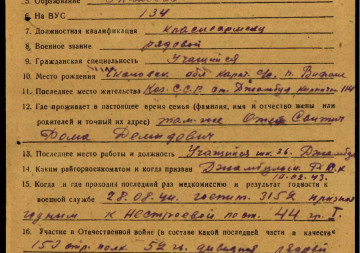 5. Образование
6. На ВУС 134
7. Должностная квалификация красноармеец
8. Военное звание рядовой
9. Гражданская специальность Учащийся
10. Место рождения обл. п.
11. Последнее место жительства Каз. С.С.Р. от. Джамбул 114
12. Где проживает в настоящее время семья (фамилия, имя и отчество жены или
родителей и точный их адрес) там-же Отец
Дома Демидович
13. Последнее место работы и должность Учащийся шк. 26. Джамбул
14. Каким райгорвоенкоматом и когда призван Джамбулск. Г.В.К
12.02.43.
15. Когда и где проходил последний раз медкомиссию и результат годности к
военной службе 28.08.44. госпит. 3152 признан
годным к нестроевой пост. 44 гр. I.
16. Участие в Отечественной войне (в составе какой последней части в качестве
159 стр. полк 52 гв. дивизия рядовой